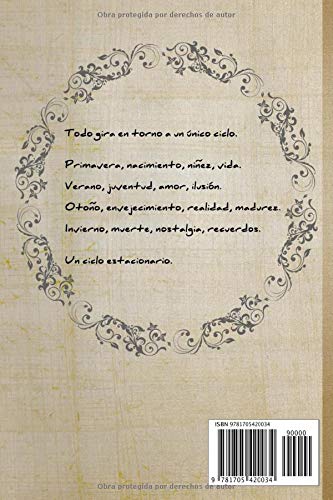 Obra protegida por derechos de autor
Todo gira en torno a un único ciclo.
Primavera, nacimiento, niñez, vida.
Verano, juventud, amor, ilusión.
Otoño, envejecimiento, realidad, madurez.
Invierno, muerte, nostalgia, recuerdos.
Un ciclo estacionario.
ISBN 9781705420034
90000
9 781705 420034
Obra protegida por derechos de autor